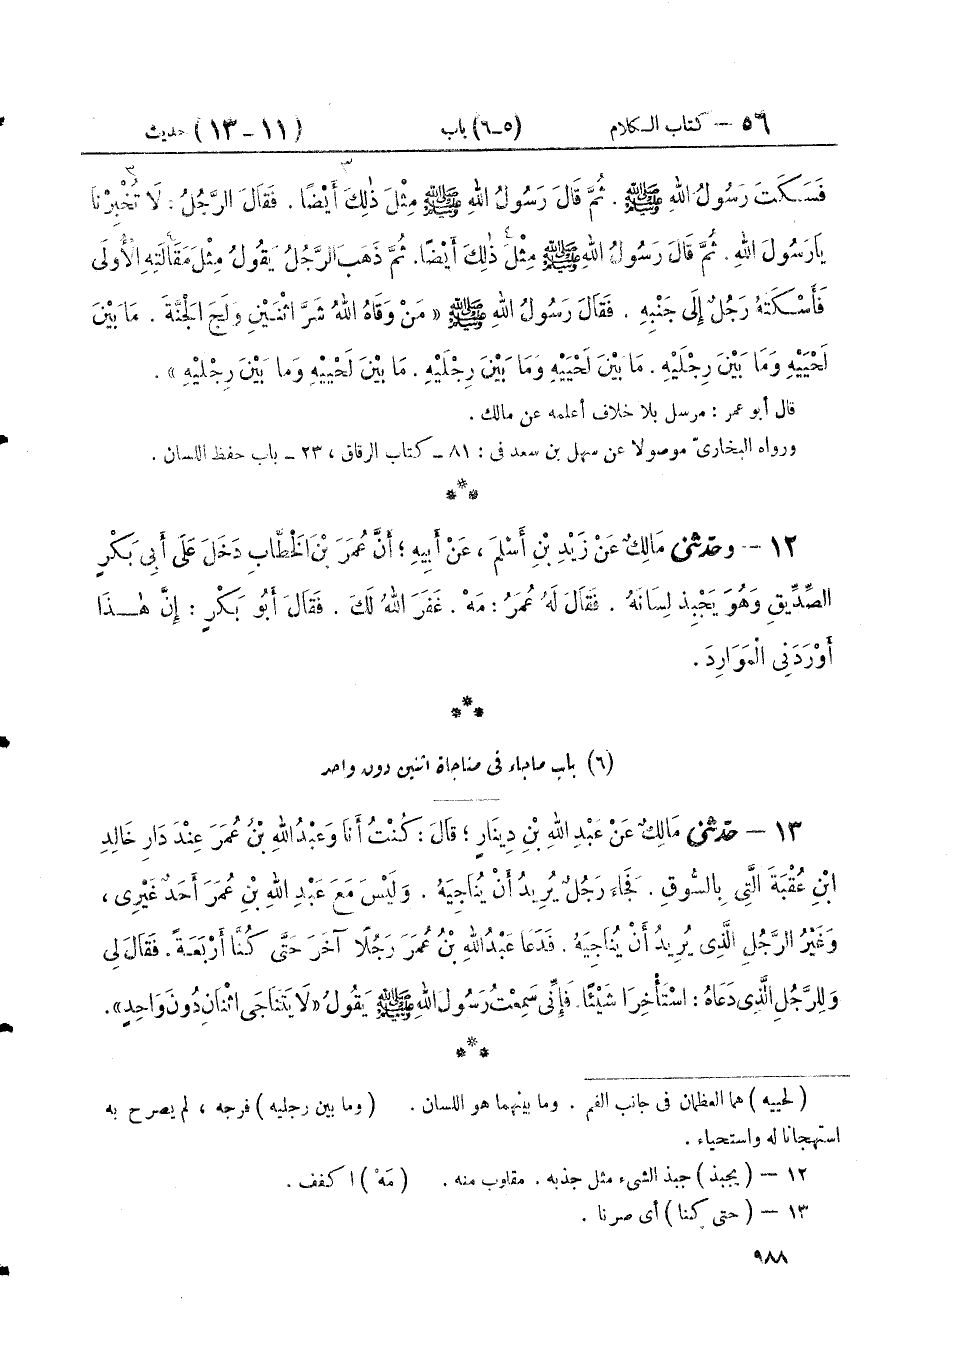 ٥٦ — كتاب الكلام (٥-٦) باب (١١-١٣) حديث
فَسَكَتَ رَسُولُ اللهِ ﷺ . ثُمَّ قَالَ رَسُولُ اللهِ ﷺ مِثْلَ ذٰلِكَ أَيْضًا . فَقَالَ الرَّجُلُ : لَا تُخْبِرْنَا
يَارَسُولَ اللهِ . ثُمَّ قَالَ رَسُولُ اللهِ ﷺ مِثْلَ ذٰلِكَ أَيْضًا. ثُمَّ ذَهَبَ الرَّجُلُ يَقُولُ مِثْلَ مَقَالَتِهِ الْأُولَى
فَأَسْكَتَهُ رَجُلٌ إِلَى جَنْبِهِ . فَقَالَ رَسُولُ اللهِ ﷺ « مَنْ وَقَاهُ اللهُ شَرَّ اثْنَيْنِ وَلَجَ الْجَنَّةَ . مَا بَيْنَ
لَحْيَيْهِ وَمَا بَيْنَ رِجْلَيْهِ . مَا بَيْنَ لَحْيَيْهِ وَمَا بَيْنَ رِجْلَيْهِ . مَا بَيْنَ لَحْيَيْهِ وَمَا بَيْنَ رِجْلَيْهِ » .
قال أبو عمر : مرسل بلا خلاف أعلمه عن مالك .
ورواه البخارىّ موصولا عن سهل بن سعد فى : ٨١ ــ كتاب الرقاق ، ٢٣ ــ باب حفظ اللسان .
***
١٢ — وحدّثنى مَالِكٌ عَنْ زَيْدِ بْنِ أَسْلَمَ ، عَنْ أَبِيهِ ؛ أَنَّ عُمَرَ بْنَ الْخَطَّابِ دَخَلَ عَلَى أَبِى بَكْرٍ
الصِّدِّيقِ وَهُوَ يَجْبِذُ لِسَانَهُ . فَقَالَ لَهُ عُمَرُ : مَهْ . غَفَرَ اللهُ لَكَ . فَقَالَ أَبُو بَكْرٍ : إِنَّ هٰـذَا
أَوْرَدَنِى الْمَوَارِدَ .
***
(٦) باب ماجاء فى مناجاة اثنين دون واحد
١٣ — حدّثنى مَالِكٌ عَنْ عَبْدِ اللهِ بْنِ دِينَارٍ ؛ قَالَ : كُنْتُ أَنَا وَعَبْدُ اللهِ بْنُ عُمَرَ عِنْدَ دَارِ خَالِدِ
ابْنِ عُقْبَةَ الَّتِى بِالسُّوقِ . فَجَاءَ رَجُلٌ يُرِيدُ أَنْ يُنَاجِيَهُ . وَلَيْسَ مَعَ عَبْدِ اللهِ بْنِ عُمَرَ أَحَدٌ غَيْرِى ،
وَغَيْرُ الرَّجُلِ الَّذِى يُرِيدُ أَنْ يُنَاجِيَهُ . فَدَعَا عَبْدُ اللهِ بْنُ عُمَرَ رَجُلًا آخَرَ حَتَّى كُنَّا أَرْبَعَةً . فَقَالَ لِى
وَلِلرَّجُلِ الَّذِى دَعَاهُ : اسْتَأْخِرَا شَيْئًا. فَإِنِّى سَمِعْتُ رَسُولَ اللهِ ﷺ يَقُولُ «لَا يَتَنَاجَى اثْنَانِ دُونَ وَاحِدٍ».
***
( لحييه ) هما العظمان فى جانب الفم . وما بينهما هو اللسان . ( وما بين رجليه ) فرجه ، لم يصرح به
استهجانا له واستحياء .
١٢ — ( يجبذ ) جبذ الشىء مثل جذبه . مقلوب منه . ( مَهْ ) اكفف .
١٣ — ( حتى كنا ) أى صرنا .
٩٨٨